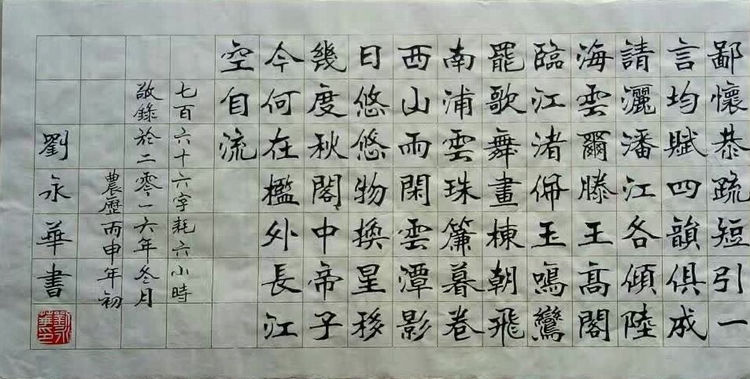 鄙懷恭疏短引一
言均賦四韻俱成
請灑潘江各傾陸
海雲爾滕王高閣
臨江渚佩玉鳴鸞
罷歌舞畫棟朝飛
南浦雲珠簾暮卷
西山雨閑雲潭影
日悠悠物換星移
幾度秋閣中帝子
今何在檻外長江
空自流
七百六十六字耗六小時
敬錄於二零一六年冬月
農歷丙申年初
劉永華書
劉永華印